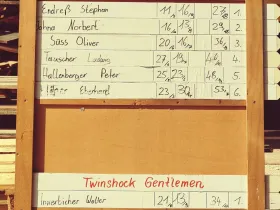 Endreß Stephan 11 16 27 1.
Norbert 16 13 29 2.
Süss Oliver 20 16 36 3.
Tauscher Ludwig 27 19 46 4.
Hallenberger Peter 25 23 48 5.
Eberhard 23 30 53 6.
Twinshock Gentlemen
Innerbichler Walter 21 13 34 1.